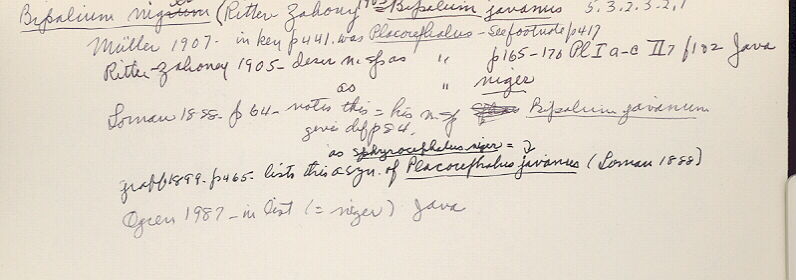 Bipalium nigrum (Ritter-Zahony 1905 = Bipalium javanus 5.3.2.3.2.1
Müller 1907 - in key p 441. was Placocephalus - see footnote p 417
Ritter-Zahoney 1905 - descr n. sp as " p 165-176 Pl I a-c II 7 f 102 Java
as " niger
Loman 1888. p 64 - notes this = his n. sp Bipalium javanum
gives diff p 84.
as Sphyrocephalus niger =
Graff 1899. p 465. lists this a syn. of Placocephalus javanus (Loman 1888)
Ogren 1987 - in list (= niger) Java